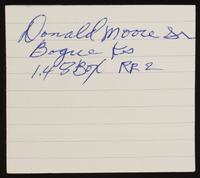 Donald Moore Sr
Bogue Ks
148 Box RR 2